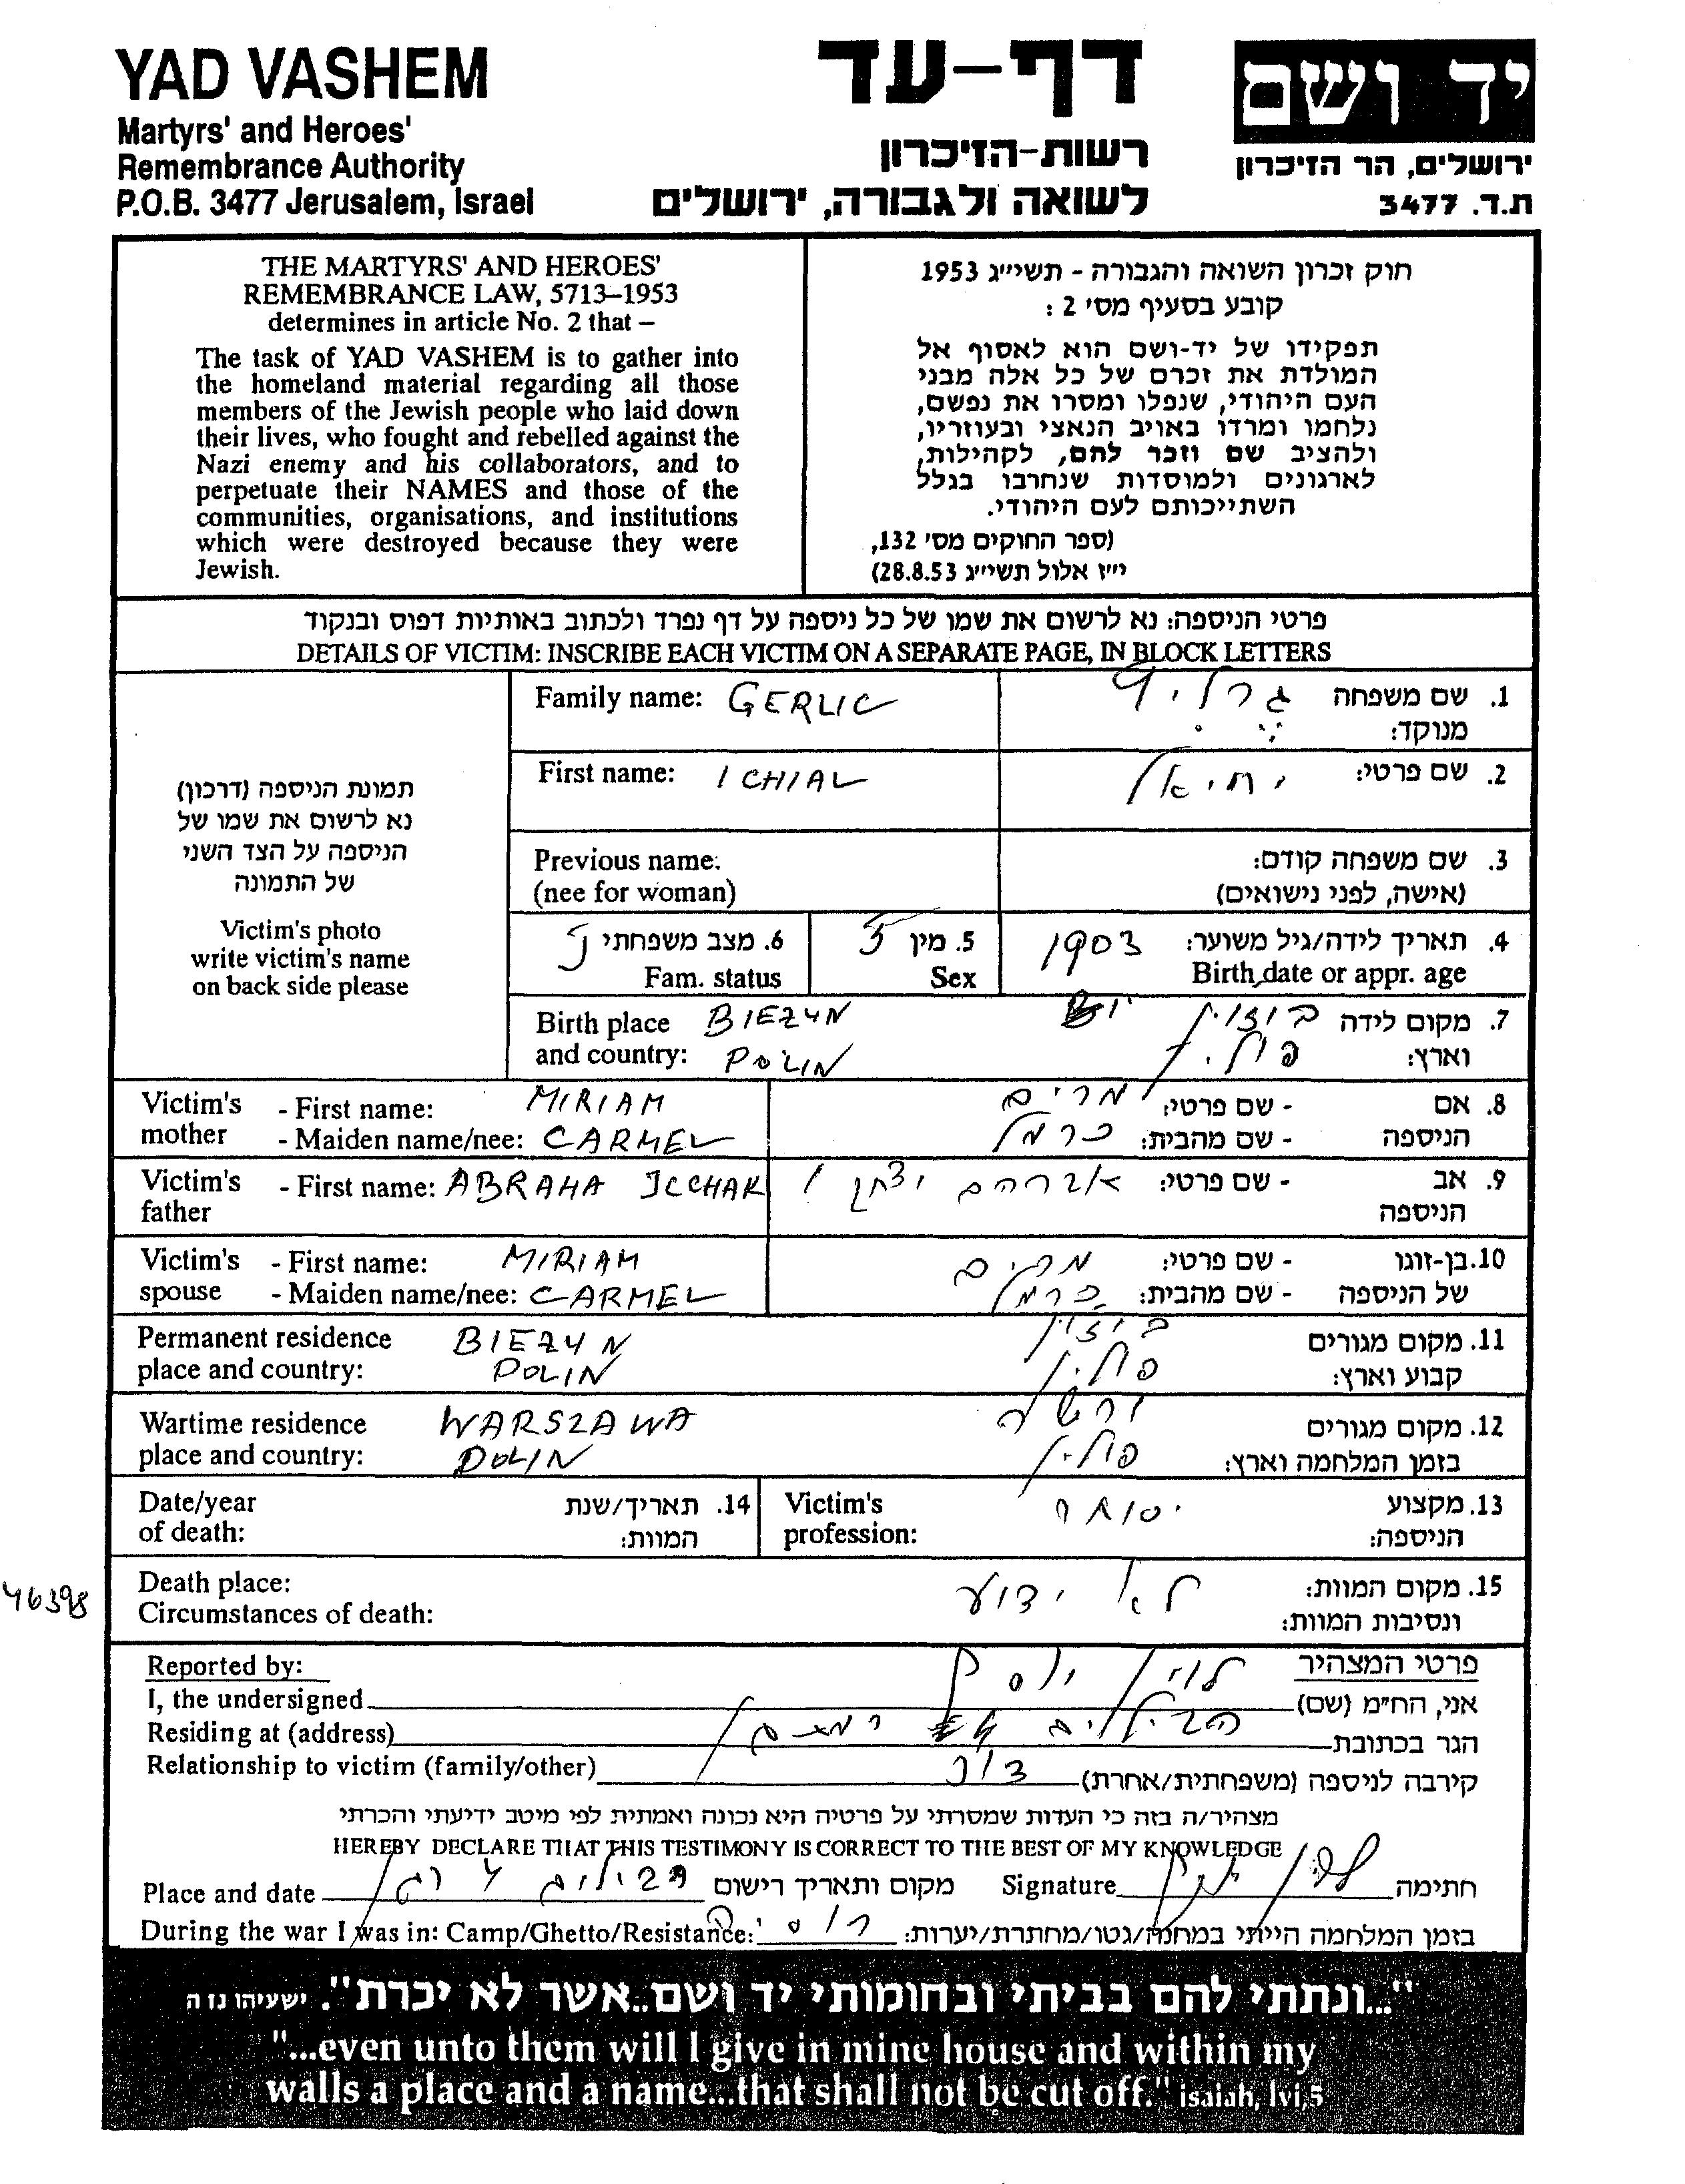 YAD VASHEM
Martyrs' and Heroes'
Remembrance Authority
P.O.B. 3477 Jerusalem, Israel
דף-עד
רשות-הזיכרון
לשואה ולגבורה, ירושלים
יד ושם
ירושלים, הר הזיכרון
ת.ד. 3477
THE MARTYRS' AND HEROES'
REMEMBRANCE LAW, 5713–1953
determines in article No. 2 that –
The task of YAD VASHEM is to gather into
the homeland material regarding all those
members of the Jewish people who laid down
their lives, who fought and rebelled against the
Nazi enemy and his collaborators, and to
perpetuate their NAMES and those of the
communities, organisations, and institutions
which were destroyed because they were
Jewish.
חוק זכרון השואה והגבורה - תשי״ג 1953
קובע בסעיף מס׳ 2 :
תפקידו של יד-ושם הוא לאסוף אל
המולדת את זכרם של כל אלה מבני
העם היהודי, שנפלו ומסרו את נפשם,
נלחמו ומרדו באויב הנאצי ובעוזריו,
ולהציב שם וזכר להם, לקהילות,
לארגונים ולמוסדות שנחרבו בגלל
השתייכותם לעם היהודי.
(ספר החוקים מס׳ 132,
י״ז אלול תשי״ג 28.8.53)
פרטי הניספה: נא לרשום את שמו של כל ניספה על דף נפרד ולכתוב באותיות דפוס ובנקוד
DETAILS OF VICTIM: INSCRIBE EACH VICTIM ON A SEPARATE PAGE, IN BLOCK LETTERS
תמונת הניספה (דרכון)
נא לרשום את שמו של
הניספה על הצד השני
של התמונה
Victim's photo
write victim's name
on back side please
Family name: GERLIC
1. שם משפחה
מנוקד:
First name: ICHIAL
2. שם פרטי: יחיאל
Previous name:
(nee for woman)
3. שם משפחה קודם:
(אישה, לפני נישואים)
4. תאריך לידה/גיל משוער: 1903
Birth date or appr. age
5. מין ז
Sex
6. מצב משפחתי נ
Fam. status
Birth place BIEZYN
and country: POLIN
7. מקום לידה ביזון
וארץ: פולין
Victim's - First name: MIRIAM
mother - Maiden name/nee: CARMEL
8. אם - שם פרטי: מרים
הניספה - שם מהבית: כרמל
Victim's - First name: ABRAHA ICCHAK
father
9. אב - שם פרטי: אברהם יצחק
הניספה
Victim's - First name: MIRIAM
spouse - Maiden name/nee: CARMEL
10. בן-זוגו - שם פרטי: מרים
של הניספה - שם מהבית: כרמל
Permanent residence BIEZYN
place and country: POLIN
11. מקום מגורים ביזון
קבוע וארץ: פולין
Wartime residence WARSZAWA
place and country: POLIN
12. מקום מגורים ורשה
בזמן המלחמה וארץ: פולין
Date/year
of death:
14. תאריך/שנת
המוות:
Victim's
profession:
13. מקצוע סוחר
הניספה:
46398
Death place:
Circumstances of death:
15. מקום המוות: לא ידוע
ונסיבות המוות:
Reported by:
פרטי המצהיר
I, the undersigned
אני, החי״מ (שם) לוין יוסף
Residing at (address)
הגר בכתובת
Relationship to victim (family/other)
קירבה לניספה (משפחתית/אחרת) דוד
מצהיר/ה בזה כי העדות שמסרתי על פרטיה היא נכונה ואמתית לפי מיטב ידיעתי והכרתי
HEREBY DECLARE THAT THIS TESTIMONY IS CORRECT TO THE BEST OF MY KNOWLEDGE
Place and date
מקום ותאריך רישום
Signature
חתימה
During the war I was in: Camp/Ghetto/Resistance:
בזמן המלחמה הייתי במחנה/גטו/מחתרת/יערות: רוסיה
"...ונתתי להם בביתי ובחומותי יד ושם..אשר לא יכרת". ישעיהו נו ה
"...even unto them will I give in mine house and within my
walls a place and a name...that shall not be cut off." isaiah, lvi,5